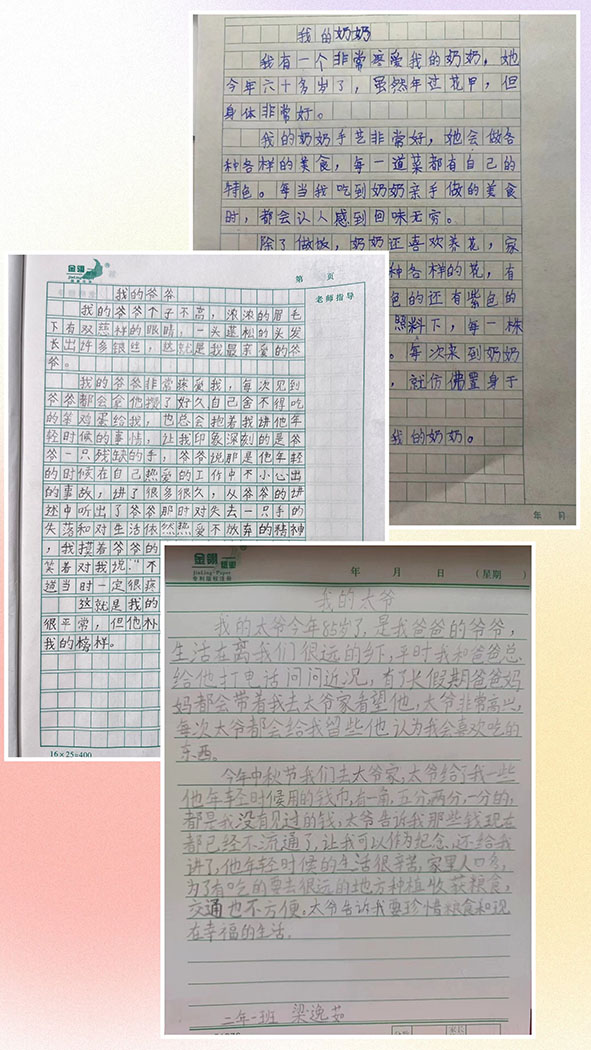 我的奶奶
我有一个非常疼爱我的奶奶，她
今年六十多岁了，虽然年过花甲，但
身体非常好。
我的奶奶手艺非常好，她会做各
种各样的美食，每一道菜都有自己的
特色。每当我吃到奶奶亲手做的美食
时，都会认人感到回味无穷。
除了做饭，奶奶还喜欢养花，家
种各样的花，有
色的还有紫色的
照料下，每一株
。每次来到奶奶
，就仿佛置身于
我的奶奶。
年 月
金翎
第 页
老师指导
我的爷爷
我的爷爷个子不高，浓浓的眉毛
下有双慈祥的眼睛，一头蓬松的头发
长出许多银丝，这就是我最亲爱的爷
爷。
我的爷爷非常疼爱我，每次见到
爷爷都会拿他攒了好久自己舍不得吃
的笨鸡蛋给我，也总会抱着我讲他年
轻时候的事情，让我印象深刻的是爷
爷一只残缺的手，爷爷说那是他年轻
的时候在自己热爱的工作中不小心出
的事故，讲了很多很久，从爷爷的讲
述中听出了爷爷那时对失去一只手的
失落和对生活依然热爱不放弃的精神
，我摸着爷爷的
笑着对我说："不
道当时一定很疼
这就是我的
很平常，但他朴
我的榜样。
16×25=400
金翎纸业
JinLing·Paper
专利版权注册
年 月 日 （星期 ）
我的太爷
我的太爷今年85岁了，是我爸爸的爷爷，
生活在离我们很远的乡下，平时我和爸爸总
给他打电话问问近况，有了长假期爸爸妈
妈都会带着我去太爷家看望他，太爷非常高兴，
每次太爷都会给我留些他认为我会喜欢吃的
东西。
今年中秋节我们去太爷家，太爷给了我一些
他年轻时候用的钱币，有一角，五分，两分，一分的，
都是我没有见过的钱，太爷告诉我那些钱现在
都已经不流通了，让我可以作为纪念，还给我
讲了，他年轻时候的生活很辛苦，家里人口多，
为了有吃的要去很远的地方种植收获粮食，
交通也不方便。太爷告诉我要珍惜粮食和现
在幸福的生活。
二年一班 梁逸茹